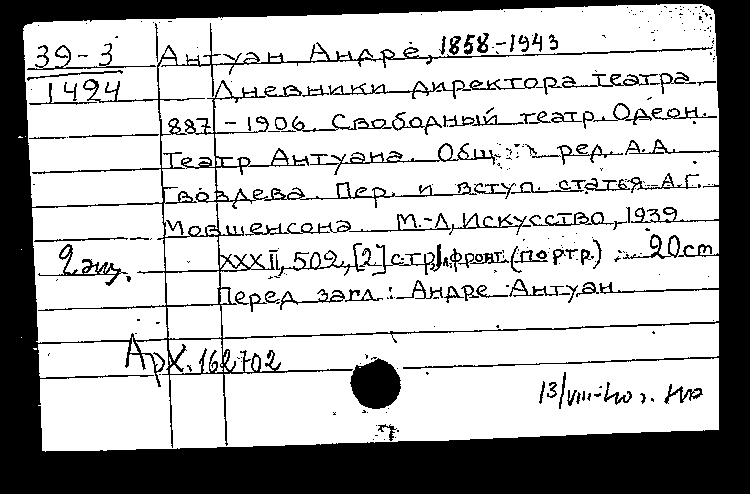 39-3 Антуан, Андре, 1858-1943
1494 Дневники директора театра.
887-1906. Свободный театр. Одеон.
Театр Антуана. Общ. ред. А.А.
Гвоздева. Пер. и вступ. статья А.Г.
Мовшенсона. М.-Л, Искусство, 1939.
2 экз. XXXII, 502, [2] стр, фронт. (портр.) 20 cm
Перед загл: Андре Антуан.
Арх. 162702
13/VIII-40 г.